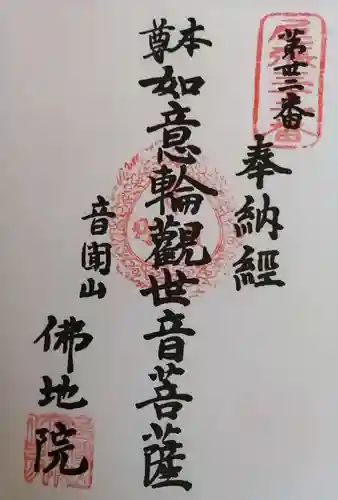 第廿三番
奉納経
本尊
如意輪觀世音菩薩
音圍山
佛地院